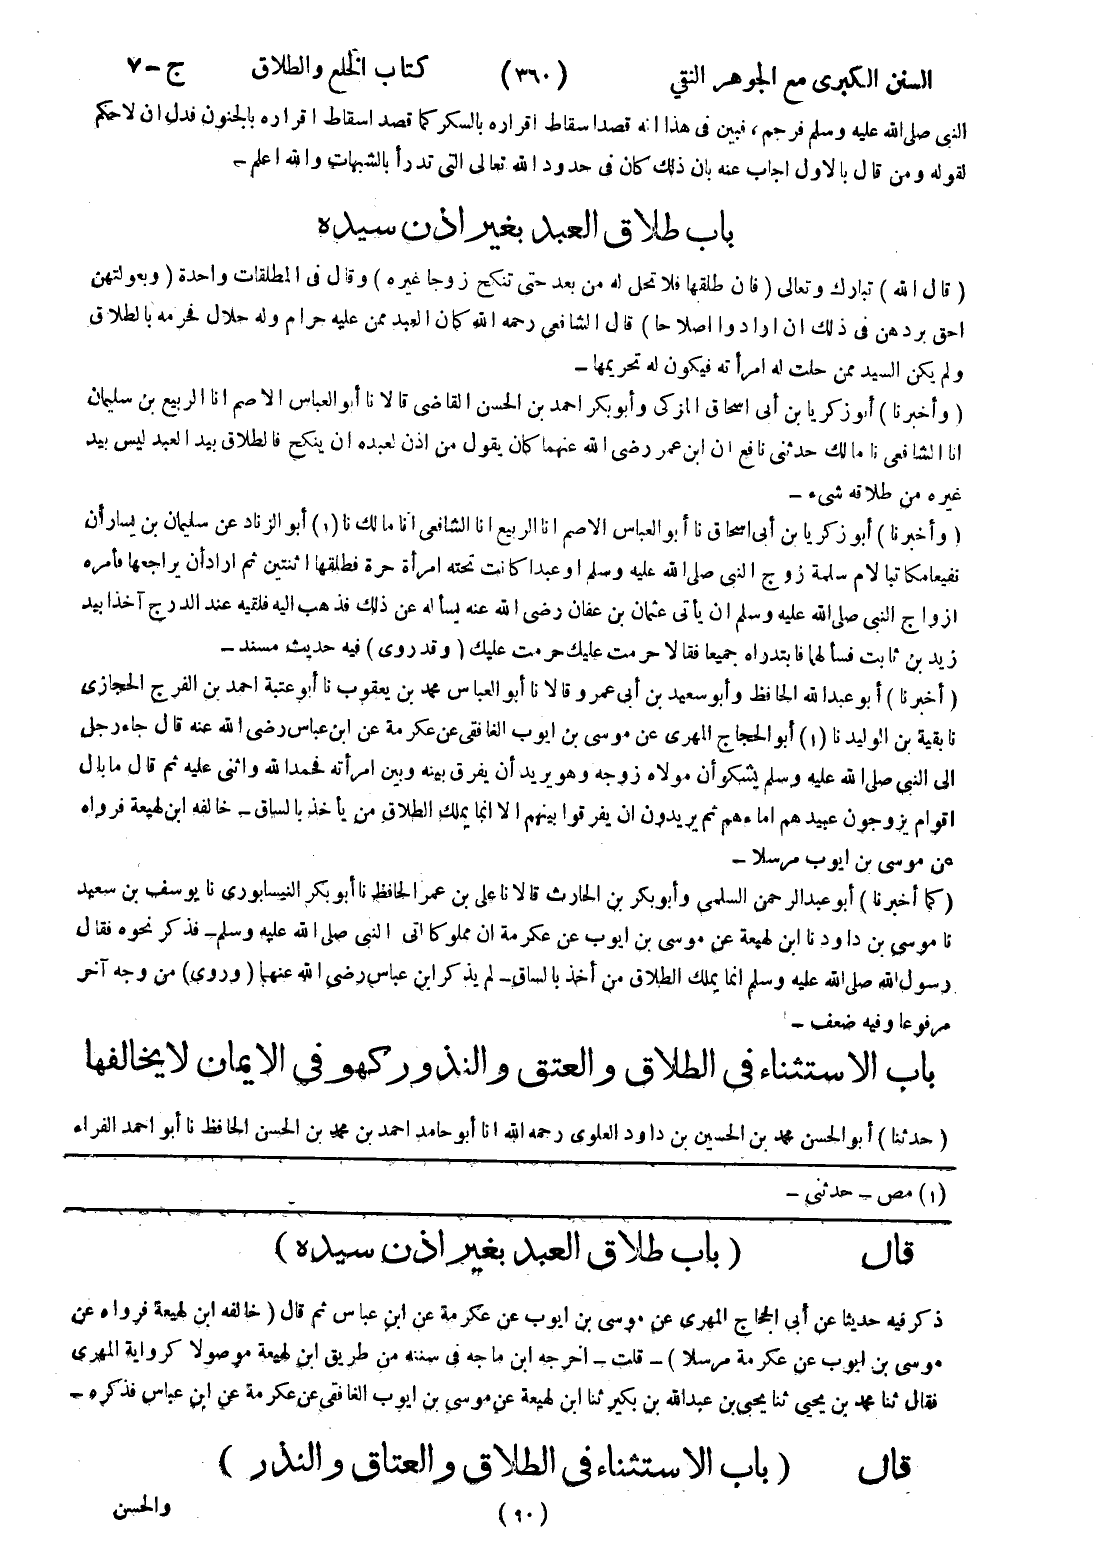 السنن الكبرى مع الجوهر النقي (٣٦٠) كتاب الخلع والطلاق ج-٧
النبى صلى الله عليه وسلم فرجم، فبين فى هذا انه قصد اسقاط اقراره بالسكر كما قصد اسقاط اقراره بالجنون فدل ان لا حكم
لقوله ومن قال بالاول اجاب عنه بان ذلك كان فى حدود الله تعالى التى تدرأ بالشبهات والله اعلم -
باب طلاق العبد بغير اذن سيده
(قال الله) تبارك وتعالى (فان طلقها فلا تحل له من بعد حتى تنكح زوجا غيره) وقال فى المطلقات واحدة (وبعولتهن
احق بردهن فى ذلك ان ارادوا اصلاحا) قال الشافعى رحمه الله كان العبد ممن عليه حرام وله حلال فحرمه بالطلاق
ولم يكن السيد ممن حلت له امرأته فيكون له تحريمها -
(وأخبرنا) أبو زكريا بن أبى اسحاق المزكى وأبوبكر احمد بن الحسن القاضى قالا نا أبو العباس الاصم انا الربيع بن سليمان
انا الشافعى نا مالك حدثنى نافع ان ابن عمر رضى الله عنهما كان يقول من اذن لعبده ان ينكح فالطلاق بيد العبد ليس بيد
غيره من طلاقه شىء -
(وأخبرنا) أبو زكريا بن أبى اسحاق نا أبو العباس الاصم انا الربيع انا الشافعى انا مالك نا (١) أبو الزناد عن سليمان بن يسار أن
نفيعا مكاتبا لام سلمة زوج النبى صلى الله عليه وسلم او عبدا كانت تحته امرأة حرة فطلقها اثنتين ثم اراد أن يراجعها فأمره
ازواج النبى صلى الله عليه وسلم ان يأتى عثمان بن عفان رضى الله عنه يسأله عن ذلك فذهب اليه فلقيه عند الدرج آخذا بيد
زيد بن ثابت فسألهما فابتدراه جميعا فقالا حرمت عليك حرمت عليك (وقد روى) فيه حديث مسند -
(أخبرنا) أبو عبد الله الحافظ وأبو سعيد بن أبى عمرو قالا نا أبو العباس محمد بن يعقوب نا أبو عتبة احمد بن الفرج الحجازى
نا بقية بن الوليد نا (١) أبو الحجاج المهرى عن موسى بن ايوب الغافقى عن عكرمة عن ابن عباس رضى الله عنه قال جاء رجل
الى النبى صلى الله عليه وسلم يشكو أن مولاه زوجه وهو يريد أن يفرق بينه وبين امرأته فحمد الله واثنى عليه ثم قال ما بال
اقوام يزوجون عبيدهم اماءهم ثم يريدون ان يفرقوا بينهم الا انما يملك الطلاق من يأخذ بالساق - خالفه ابن لهيعة فرواه
عن موسى بن ايوب مرسلا -
(كما أخبرنا) أبو عبد الرحمن السلمى وأبوبكر بن الحارث قالا نا على بن عمر الحافظ نا أبو بكر النيسابورى نا يوسف بن سعيد
نا موسى بن داود نا ابن لهيعة عن موسى بن ايوب عن عكرمة ان مملوكا اتى النبى صلى الله عليه وسلم - فذكر نحوه فقال
رسول الله صلى الله عليه وسلم انما يملك الطلاق من أخذ بالساق - لم يذكر ابن عباس رضى الله عنهما (وروى) من وجه آخر
مرفوعا وفيه ضعف -
باب الاستثناء فى الطلاق والعتق والنذور كهو فى الايمان لا يخالفها
(حدثنا) أبو الحسن محمد بن الحسين بن داود العلوى رحمه الله انا أبو حامد احمد بن محمد بن الحسن الحافظ نا أبو احمد الفراء
(١) مص - حدثنى -
قال (باب طلاق العبد بغير اذن سيده)
ذكر فيه حديثا عن أبى الحجاج المهرى عن موسى بن ايوب عن عكرمة عن ابن عباس ثم قال (خالفه ابن لهيعة فرواه عن
موسى بن ايوب عن عكرمة مرسلا) - قلت - اخرجه ابن ماجه فى سننه من طريق ابن لهيعة موصولا كرواية المهرى
فقال ثنا محمد بن يحيى ثنا يحيى بن عبد الله بن بكير ثنا ابن لهيعة عن موسى بن ايوب الغافقى عن عكرمة عن ابن عباس فذكره -
قال (باب الاستثناء فى الطلاق والعتاق والنذر)
(٩٠) والحسن